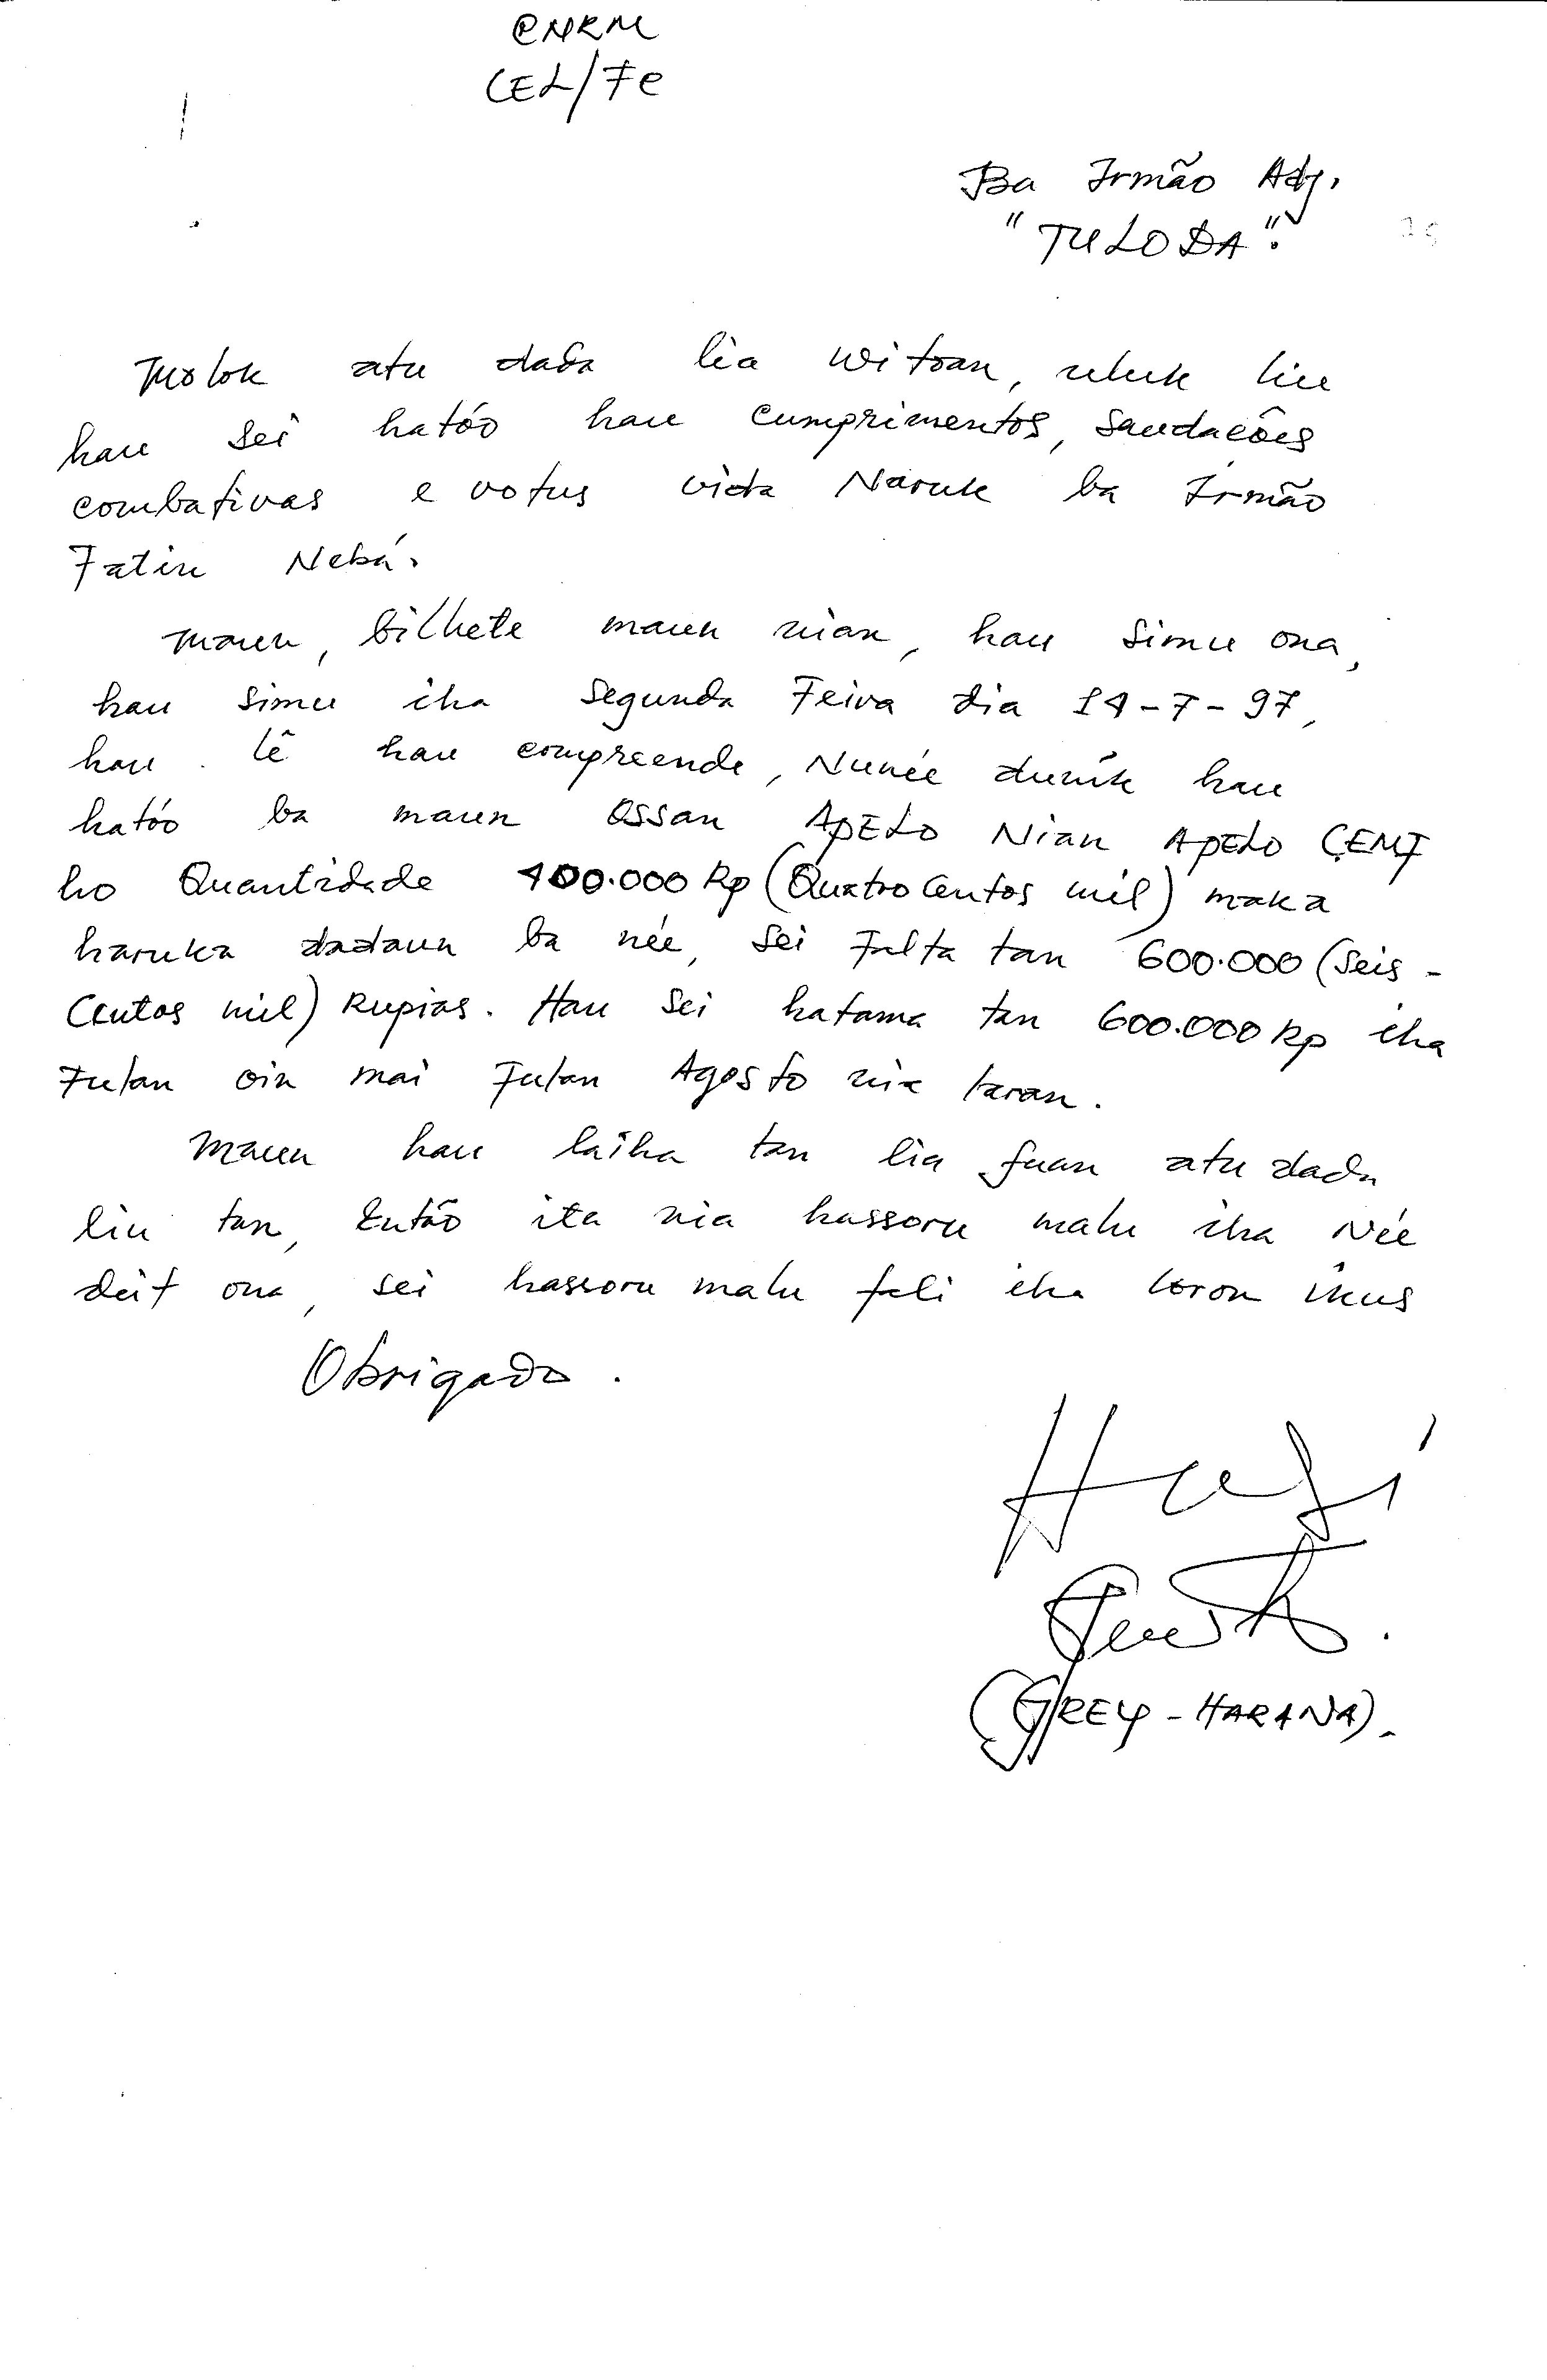 CNRM
CEL/FC
Ba Irmão Adj.
"TULODA".
Molok atu dada lia uitoan, uluk liu
hau sei hatóo hau cumprimentos, saudacões
combativas e votus vida Naruk ba Irmão
Fatin Nebá.
Maun, bilhete maun nian, hau simu ona,
hau simu iha Segunda Feira dia 14-7-97,
hau lê hau compreende, Nunée duník hau
hatóo ba maun Ossan APELO Nian APELO CEMF
ho Quantidade 400.000 Rp (Quatrocentos mil) maka
haruka dadaun ba née, sei Falta tan 600.000 (Seis-
Centos mil) Rupias. Hau sei hatama tan 600.000 Rp iha
Fulan oin mai Fulan Agosto nia laran.
Maun hau laiha tan lia fuan atu dada
liu tan, Então ita nia hassoru malu iha Née
deit ona, sei hassoru malu fali iha loron ikus
Obrigado.
(GREY-HARANA).